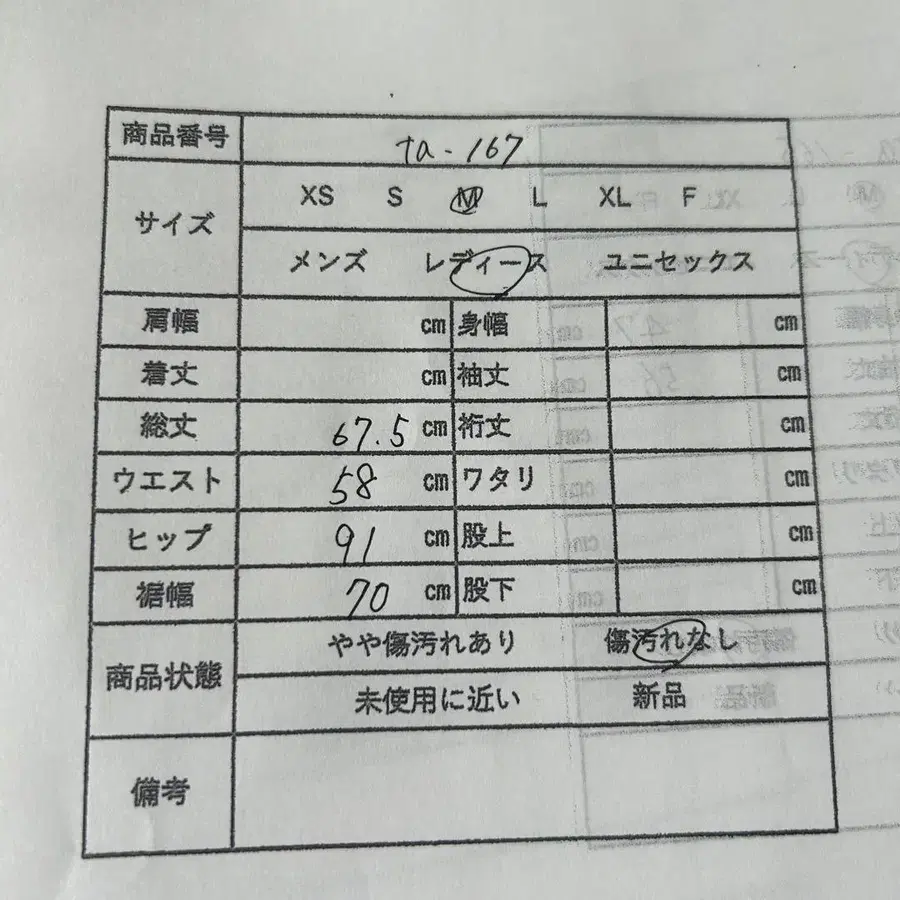 商品番号 ta-167
サイズ XS S M L XL F
メンズ レディース ユニセックス
肩幅 cm 身幅 cm
着丈 cm 袖丈 cm
総丈 67.5 cm 裄丈 cm
ウエスト 58 cm ワタリ cm
ヒップ 91 cm 股上 cm
裾幅 70 cm 股下 cm
商品状態 やや傷汚れあり 傷汚れなし
未使用に近い 新品
備考